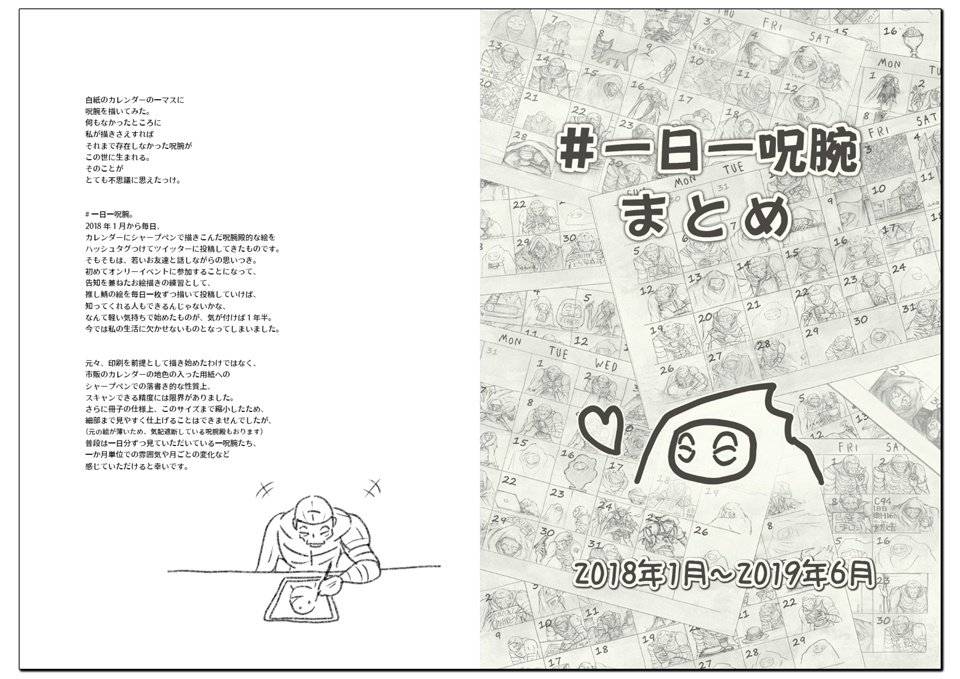 白紙のカレンダーの一マスに
呪腕を描いてみた。
何もなかったところに
私が描きさえすれば
それまで存在しなかった呪腕が
この世に生まれる。
そのことが
とても不思議に思えたっけ。
#一日一呪腕。
2018年1月から毎日、
カレンダーにシャープペンで描きこんだ呪腕殿的な絵を
ハッシュタグつけてツイッターに投稿してきたものです。
そもそもは、若いお友達と話しながらの思いつき。
初めてオンリーイベントに参加することになって、
告知を兼ねたお絵描きの練習として、
推し鯖の絵を毎日一枚ずつ描いて投稿していけば、
知ってくれる人もできるんじゃないかな、
なんて軽い気持ちで始めたものが、気が付けば1年半。
今では私の生活に欠かせないものとなってしまいました。
元々、印刷を前提として描き始めたわけではなく、
市販のカレンダーの地色の入った用紙への
シャープペンでの落書き的な性質上、
スキャンできる精度には限界がありました。
さらに冊子の仕様上、このサイズまで縮小したため、
細部まで見やすく仕上げることはできませんでしたが、
(元の絵が薄いため、気配遮断している呪腕殿もおります)
普段は一日分ずつ見ていただいている一呪腕たち、
一か月単位での雰囲気や月ごとの変化など
感じていただけると幸いです。
#一日一呪腕
まとめ
2018年1月~2019年6月